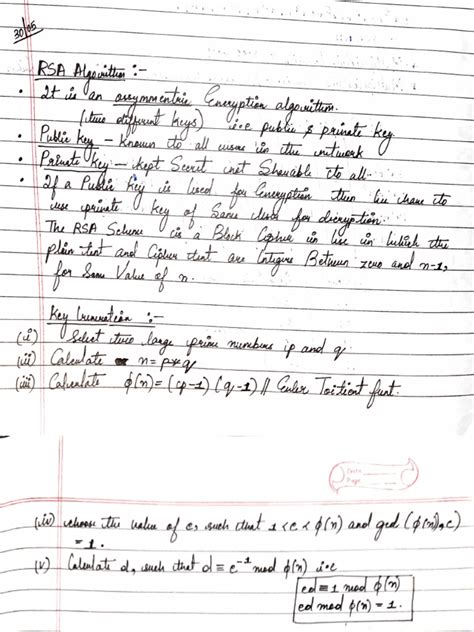 30/05
RSA Algorithm :-
• It is an assymmentric Encryption algorithm.
(two different keys) i.e public & private key.
• Public key - known to all users in the network
• Private key - kept Secret not Shareable to all.
• If a Public key is used for Encryption then we have to
use private key of Same user for decryption.
The RSA Scheme is a Block Cipher in in which the
plain text and Cipher text are Integers Between zero and n-1,
for Some Value of n.
Key Generation :-
(i) Select two large prime numbers p and q
(ii) Calculate n = p*q
(iii) Calculate ϕ(n) = (p-1) (q-1) // Euler Toitient funt.
Date
Page
(iv) choose the value of e, such that 1 < e < ϕ(n) and gcd (ϕ(n), e)
= 1.
(v) Calculate d, such that d ≡ e⁻¹ mod ϕ(n) i.e
ed ≡ 1 mod ϕ(n)
ed mod ϕ(n) = 1.